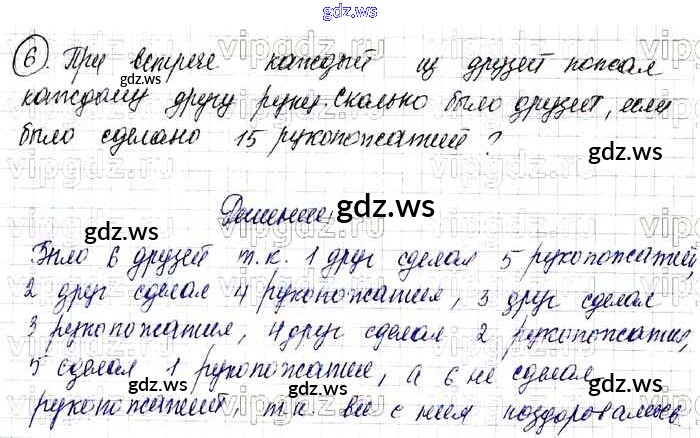 gdz.ws
⑥ При встрече каждый из друзей пожал
каждому другу руку. Сколько было друзей, если
было сделано 15 рукопожатий?
Решение:
Было 6 друзей т.к. 1 друг сделал 5 рукопожатий,
2 друг сделал 4 рукопожатия, 3 друг сделал
3 рукопожатия, 4 друг сделал 2 рукопожатия,
5 сделал 1 рукопожатие, а 6 не сделал
рукопожатий, т.к все с ним поздоровались
vipgdz.ru
gdz.ws